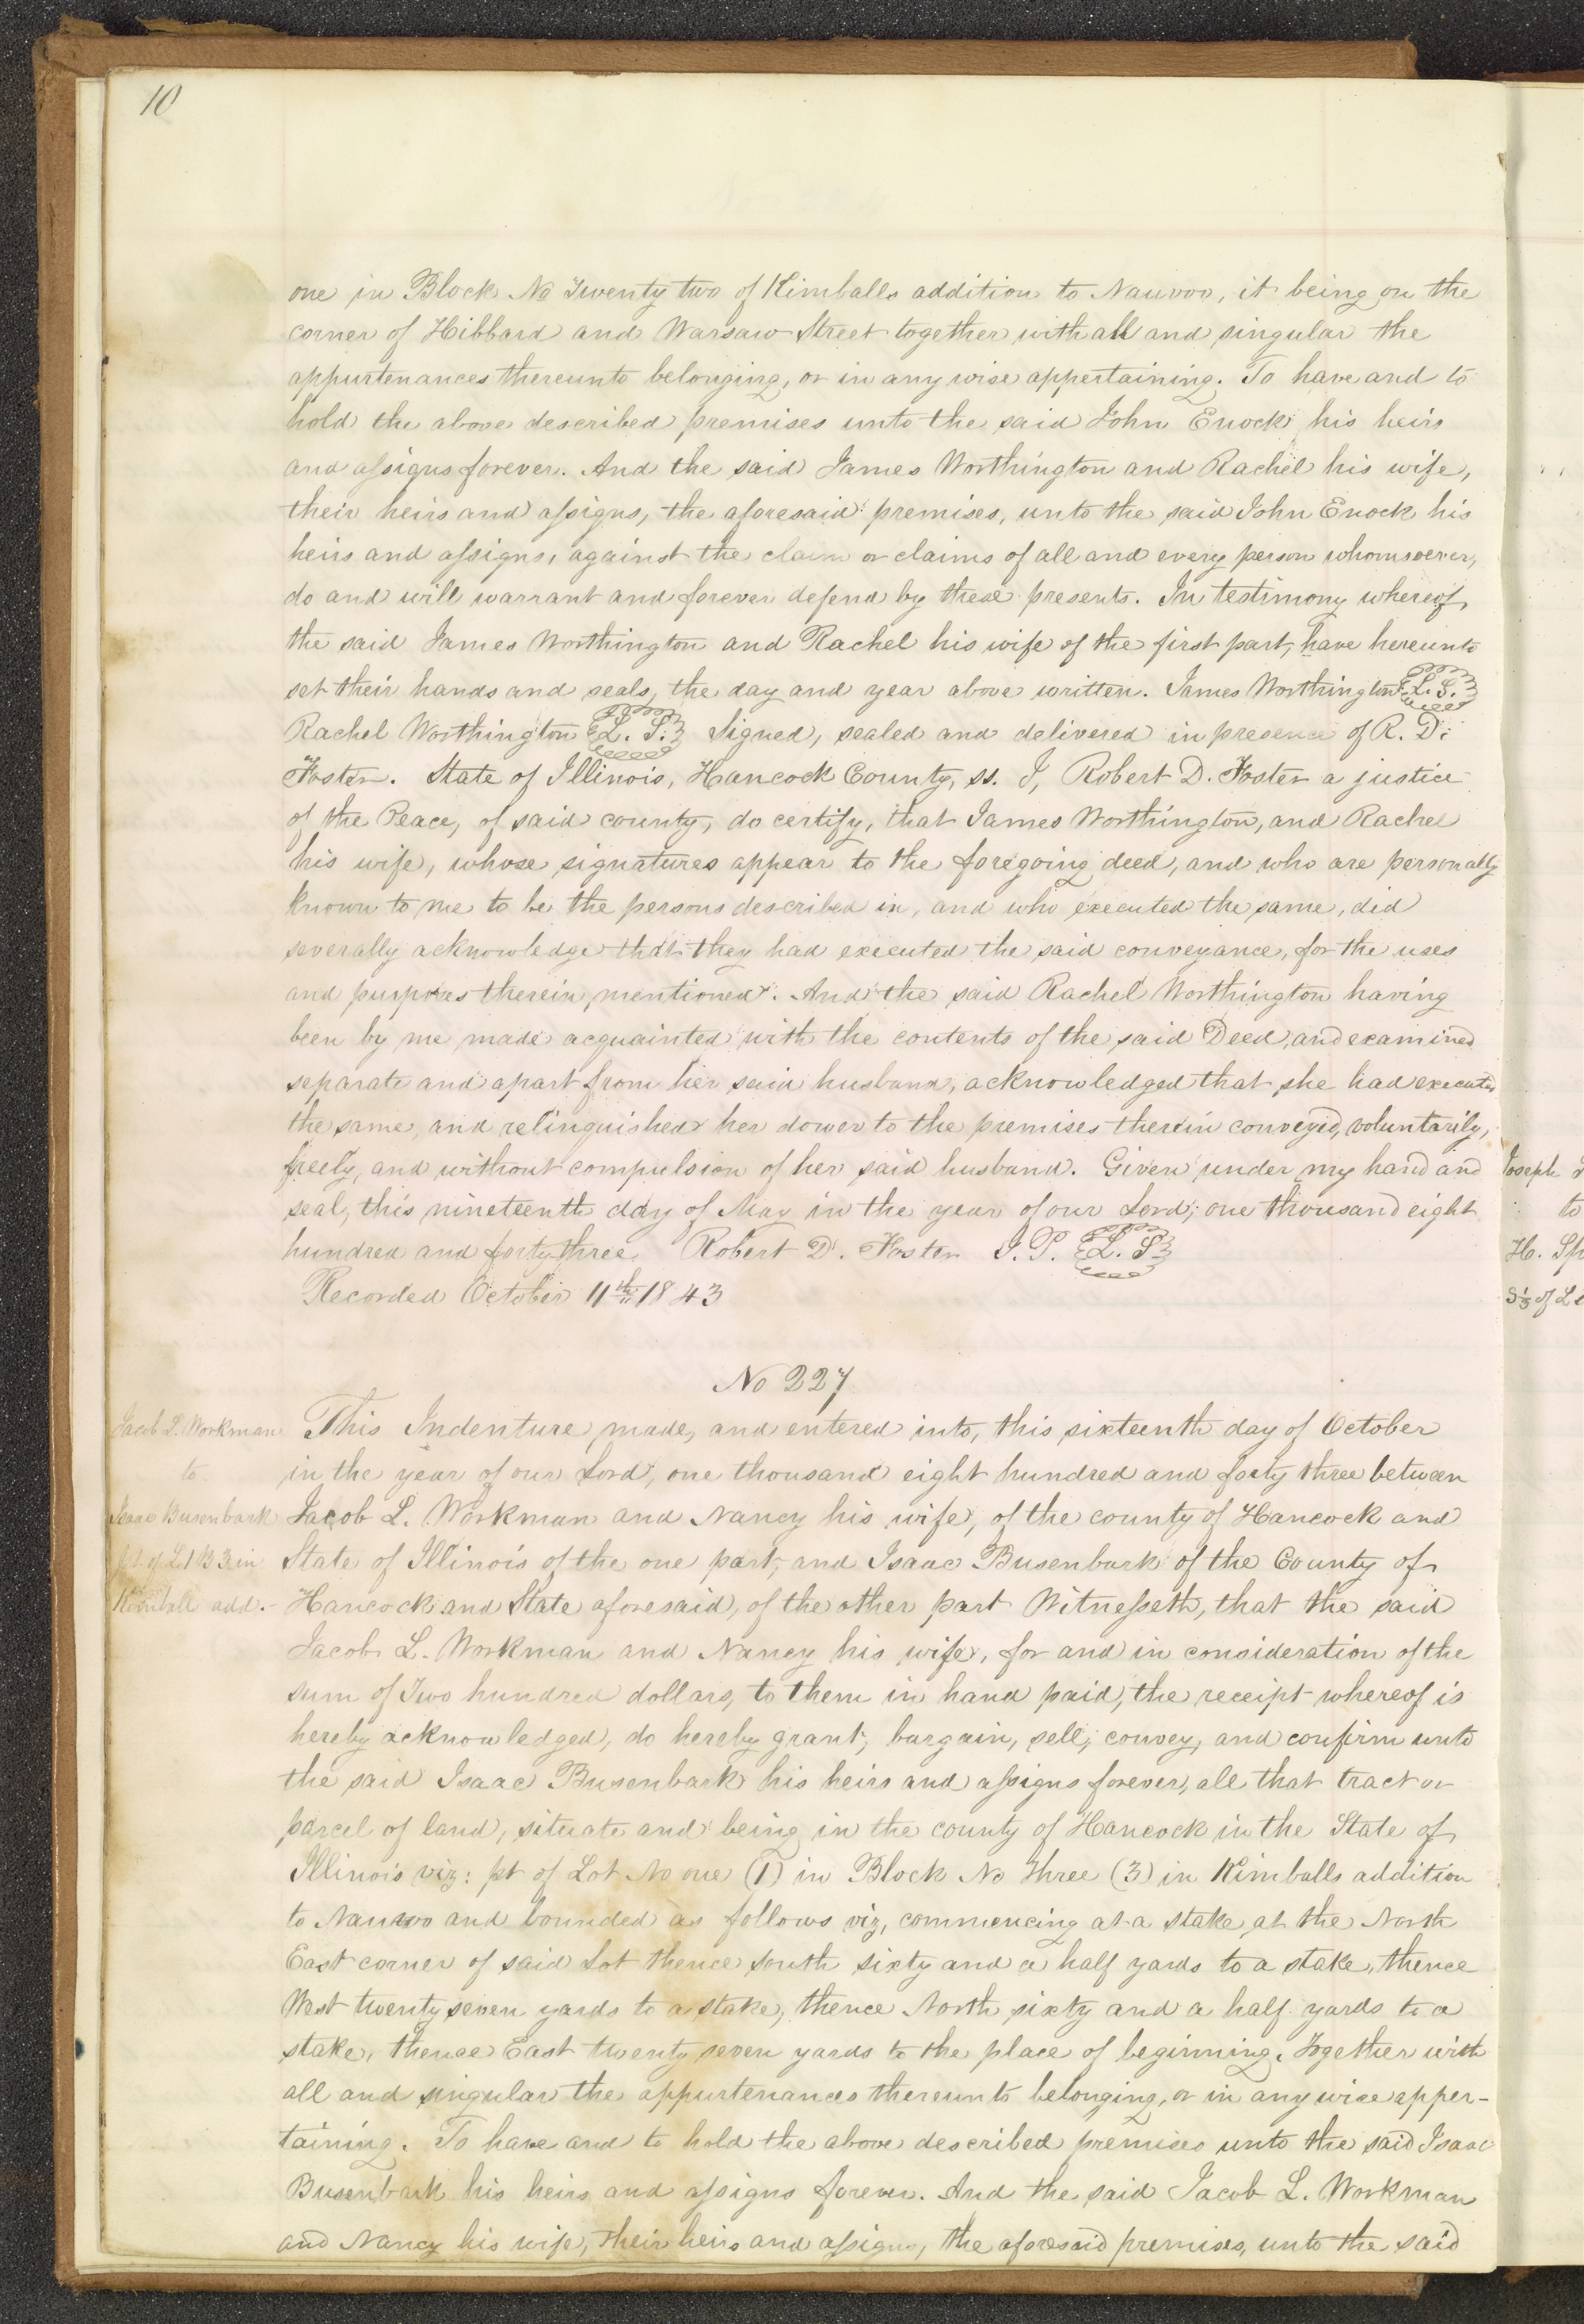 10
one in Block No Twenty two of Kimballs addition to Nauvoo, it being on the
corner of Hibbard and Warsaw Street together with all and singular the
appurtenances thereunto belonging, or in any wise appertaining. To have and to
hold the above described premises unto the said John Enock his heirs
and assigns forever. And the said James Worthington and Rachel his wife,
their heirs and assigns, the aforesaid premises, unto the said John Enock his
heirs and assigns, against the claim or claims of all and every person whomsoever,
do and will warrant and forever defend by these presents. In testimony whereof,
the said James Worthington and Rachel his wife of the first part, have hereunto
set their hands and seals, the day and year above written. James Worthington L. S.
Rachel Worthington L. S. Signed, sealed and delivered in presence of R. D.
Foster. State of Illinois, Hancock County, ss. I, Robert D. Foster a justice
of the Peace, of said county, do certify, that James Worthington, and Rachel
his wife, whose signatures appear to the foregoing deed, and who are personally
known to me to be the persons described in, and who executed the same, did
severally acknowledge that they had executed the said conveyance, for the uses
and purposes therein mentioned. And the said Rachel Worthington having
been by me made acquainted with the contents of the said Deed, and examined
separate and apart from her said husband, acknowledged that she had executed
the same, and relinquished her dower to the premises therein conveyed, voluntarily,
freely, and without compulsion of her said husband. Given under my hand and
seal, this nineteenth day of May in the year of our Lord, one thousand eight
hundred and forty three Robert D. Foster J. P. L. S
Recorded October 11th 1843
No 227
Jacob L. Workman
to
Isaac Busenbark
pt. of L 1 B 3 in
Kimball add.
This Indenture made, and entered into, this sixteenth day of October
in the year of our Lord, one thousand eight hundred and forty three between
Jacob L. Workman and Nancy his wife, of the county of Hancock and
State of Illinois of the one part, and Isaac Busenbark of the County of
Hancock and State aforesaid, of the other part Witnesseth, that the said
Jacob L. Workman and Nancy his wife, for and in consideration of the
sum of Two hundred dollars, to them in hand paid, the receipt whereof is
hereby acknowledged, do hereby grant, bargain, sell, convey, and confirm unto
the said Isaac Busenbark his heirs and assigns forever, all that tract or
parcel of land, situate and being in the county of Hancock in the State of
Illinois viz: pt of Lot No one (1) in Block No Three (3) in Kimballs addition
to Nauvoo and bounded as follows viz, commencing at a stake, at the North
East corner of said Lot thence South sixty and a half yards to a stake, thence
West twenty seven yards to a stake, thence North sixty and a half yards to a
stake, thence East twenty seven yards to the place of beginning, Together with
all and singular the appurtenances thereunto belonging, or in any wise apper-
taining. To have and to hold the above described premises unto the said Isaac
Busenbark his heirs and assigns forever. And the said Jacob L. Workman
and Nancy his wife, their heirs and assigns, the aforesaid premises, unto the said
Joseph
to
H. Sp